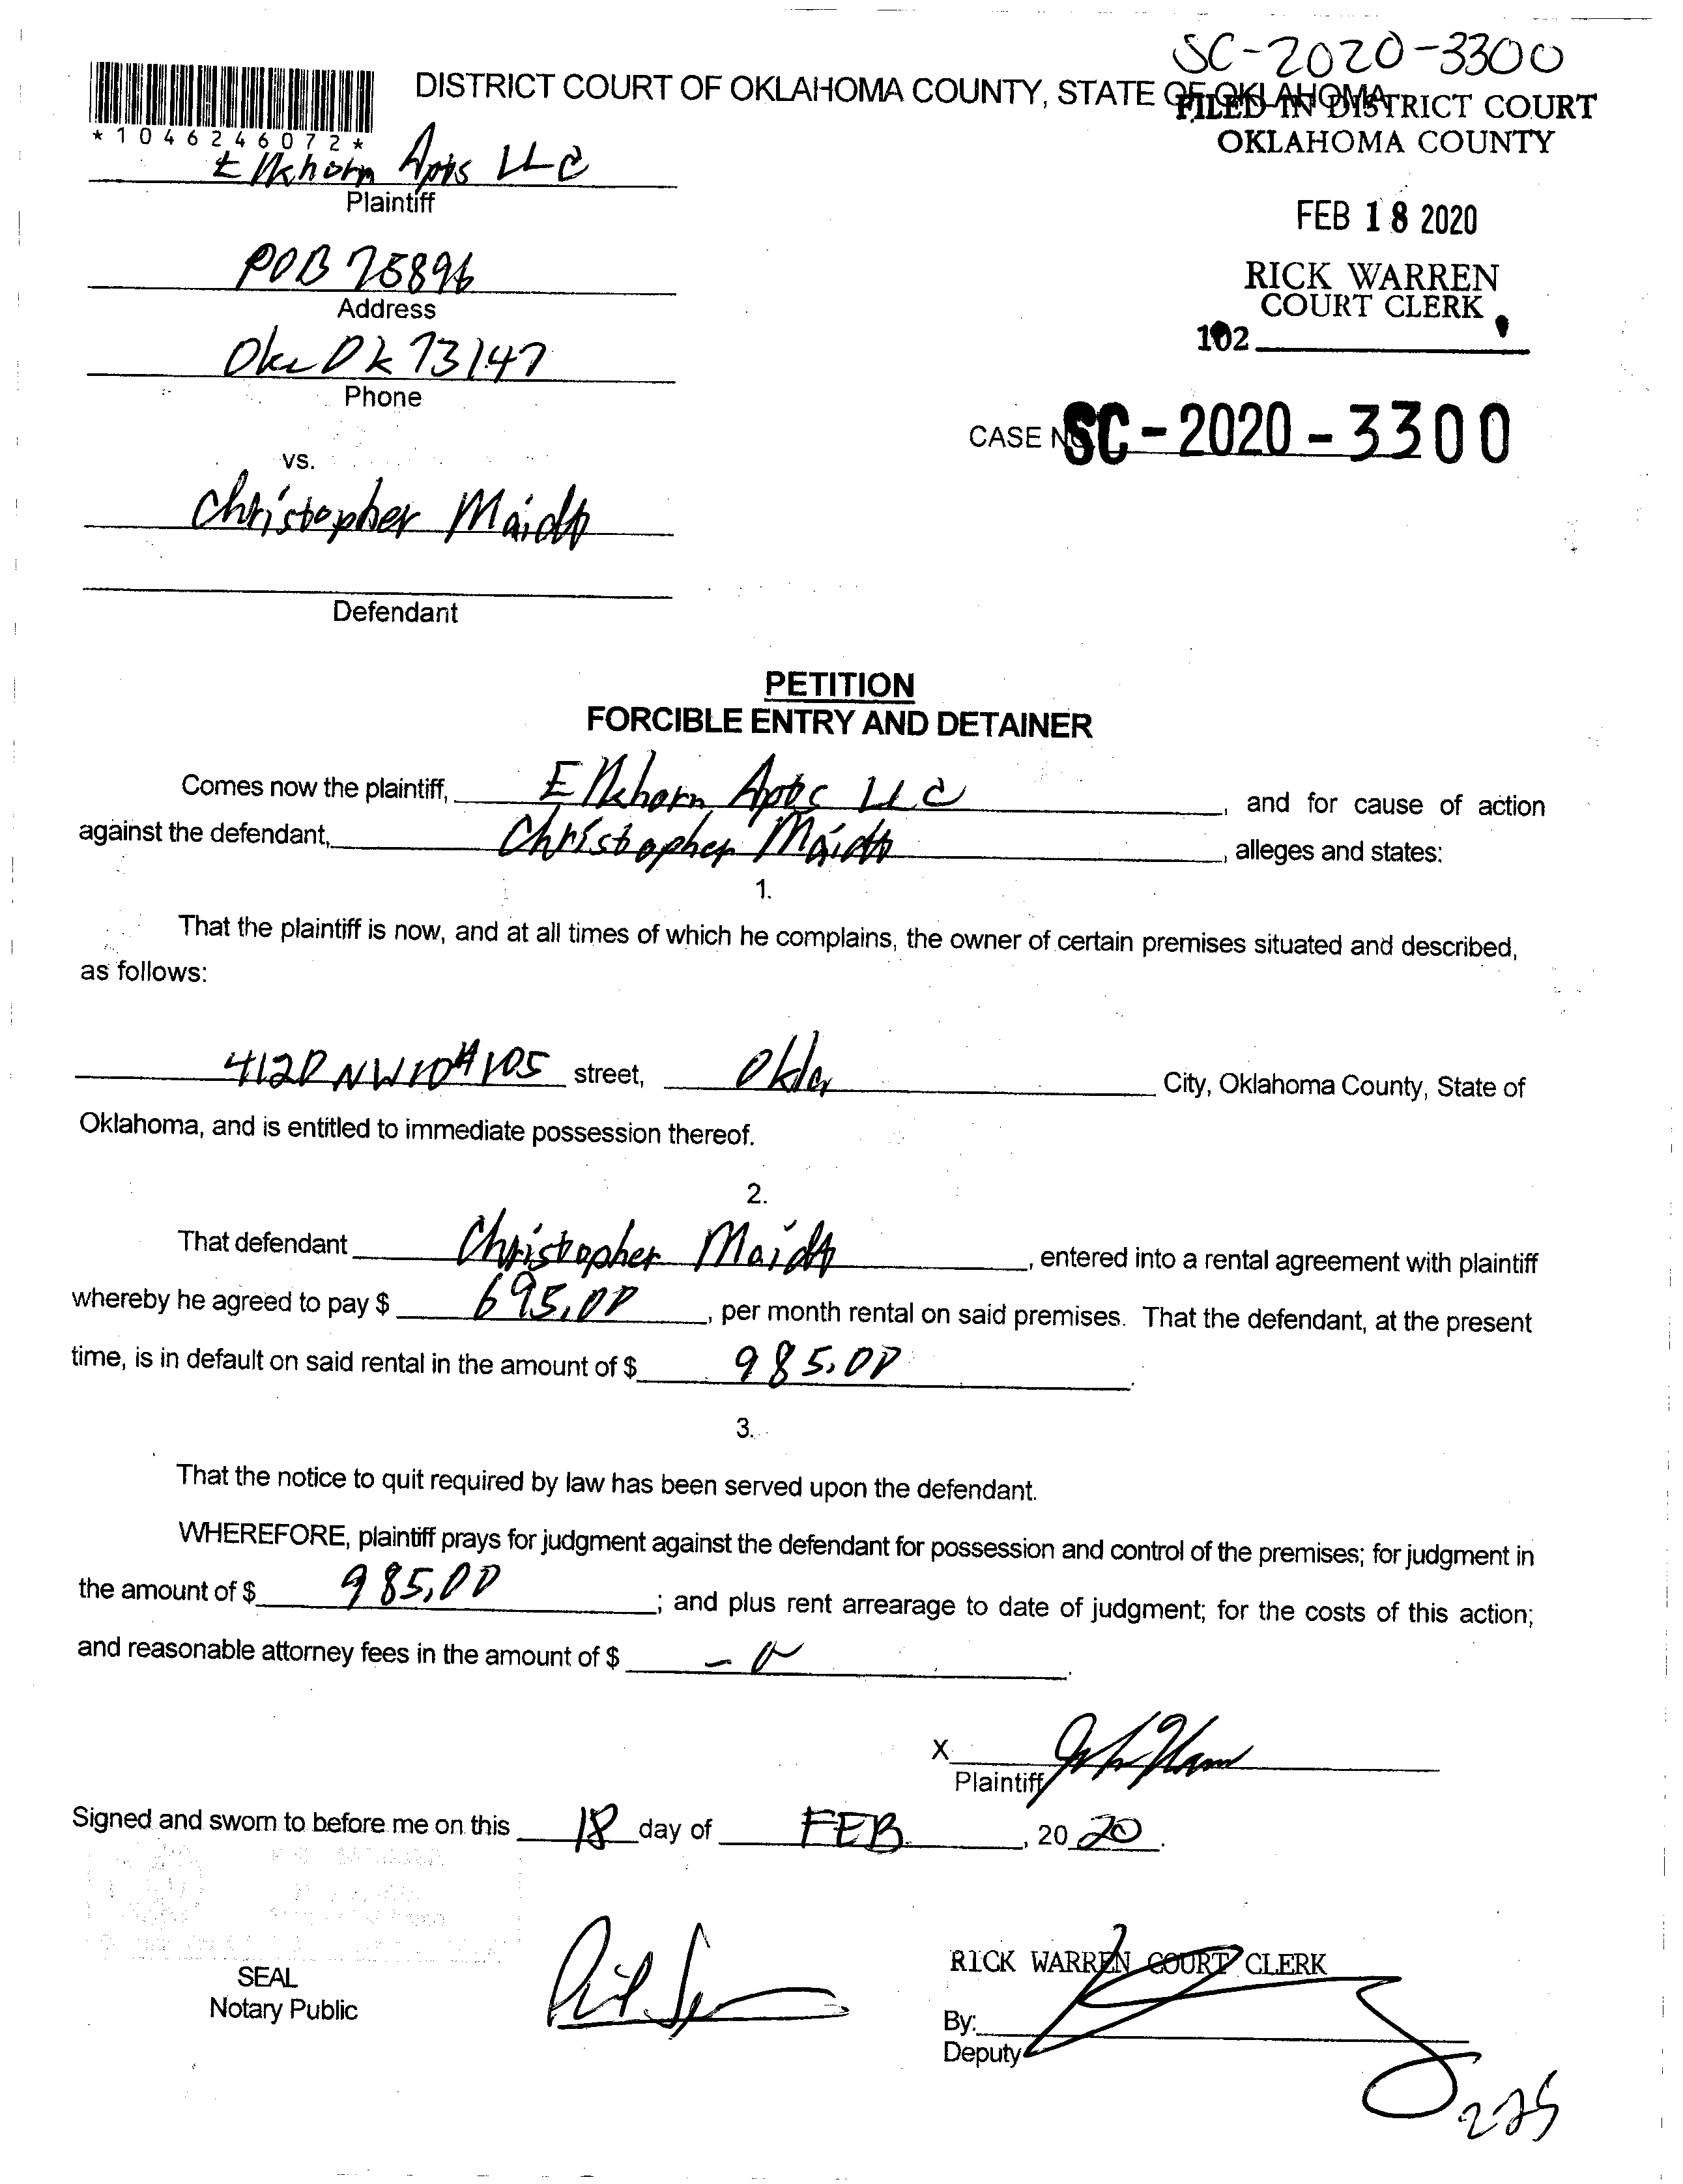 SC-2020-3300
DISTRICT COURT OF OKLAHOMA COUNTY, STATE OF OKLAHOMA
FILED IN DISTRICT COURT
OKLAHOMA COUNTY
*1046246072*
Elkhorn Apts LLC
Plaintiff
FEB 18 2020
POB 75896
Address
RICK WARREN
COURT CLERK
102
Okc Ok 73147
Phone
CASE NO. SC-2020-3300
vs.
Christopher Maidt
Defendant
PETITION
FORCIBLE ENTRY AND DETAINER
Comes now the plaintiff, Elkhorn Apts LLC, and for cause of action
against the defendant, Christopher Maidt, alleges and states:
1.
That the plaintiff is now, and at all times of which he complains, the owner of certain premises situated and described,
as follows:
4120 NW10#105 street, Okla City, Oklahoma County, State of
Oklahoma, and is entitled to immediate possession thereof.
2.
That defendant Christopher Maidt, entered into a rental agreement with plaintiff
whereby he agreed to pay $ 695.00, per month rental on said premises. That the defendant, at the present
time, is in default on said rental in the amount of $ 985.00.
3.
That the notice to quit required by law has been served upon the defendant.
WHEREFORE, plaintiff prays for judgment against the defendant for possession and control of the premises; for judgment in
the amount of $ 985.00; and plus rent arrearage to date of judgment; for the costs of this action;
and reasonable attorney fees in the amount of $ - 0
X
Plaintiff
Signed and sworn to before me on this 18 day of FEB, 2020.
SEAL
Notary Public
RICK WARREN COURT CLERK
By:
Deputy
225